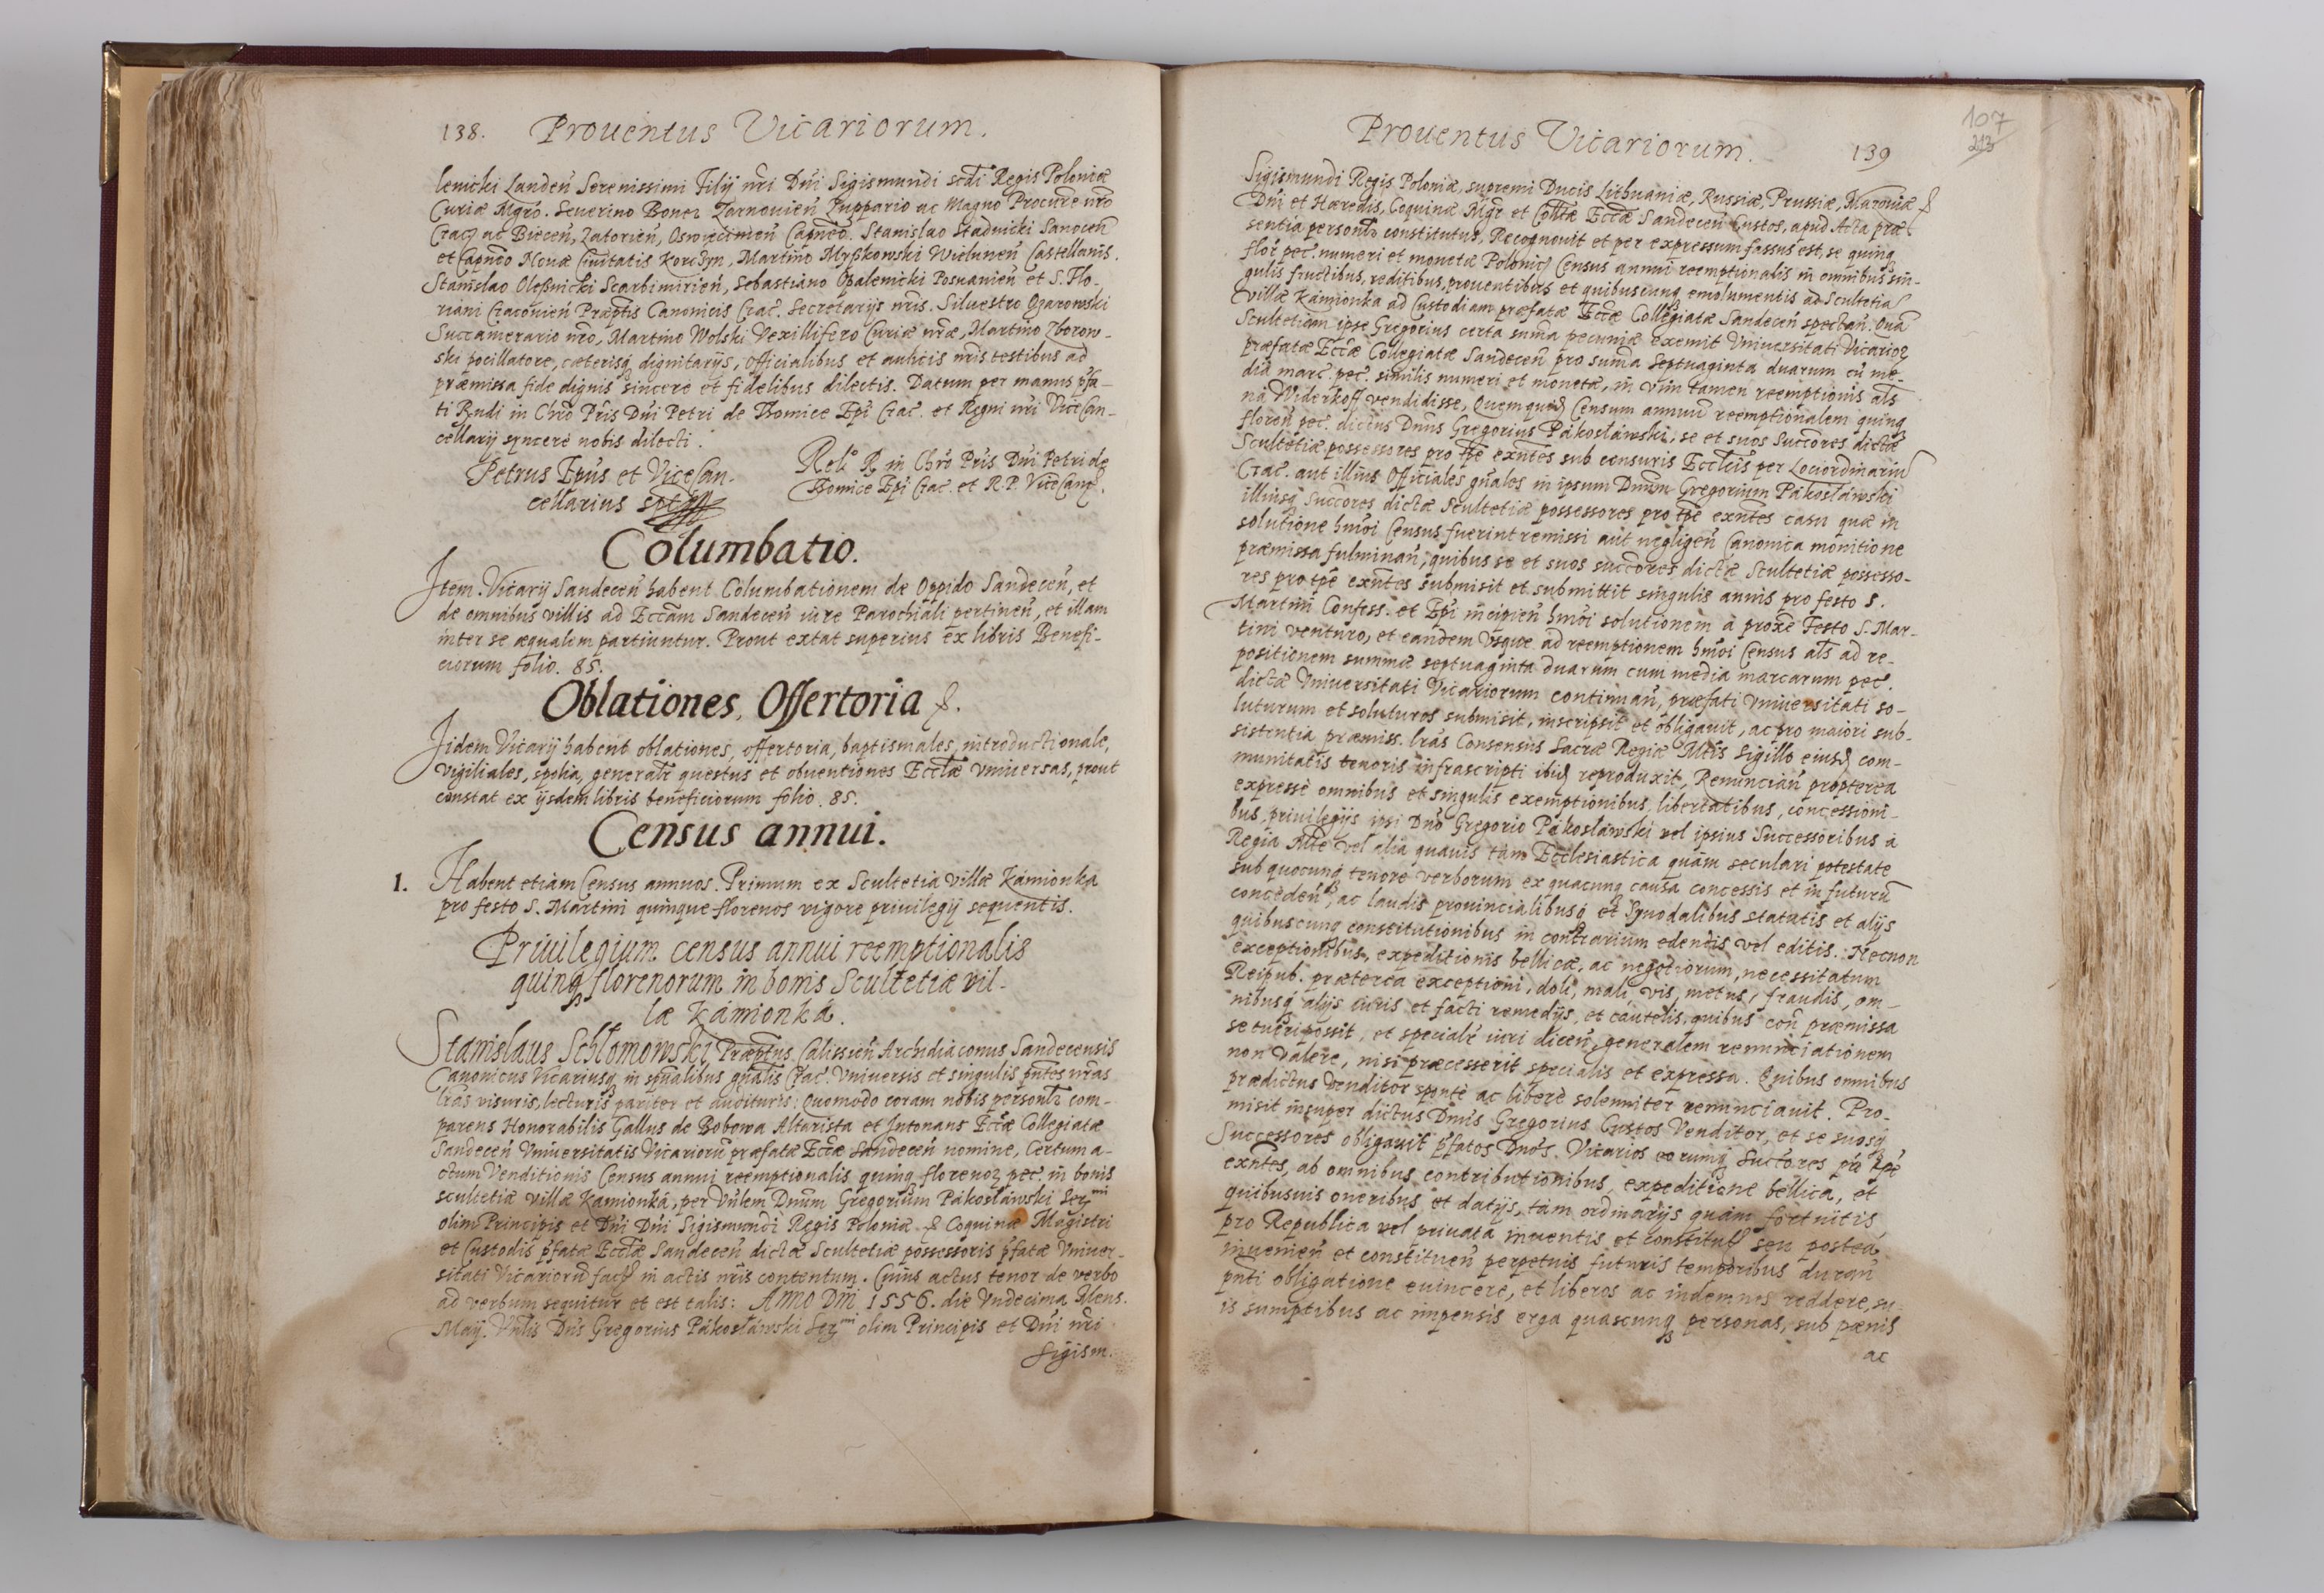 138. Prouentus Vicariorum.
lenicki Landeń Serenissimi Filij nri Dni Sigismundi scdi Regis Poloniæ
Curiæ Mgro. Seuerino Boner Zarnouień Zuppario ac Magno Procure nro
Crac ac Biecen, Zatorień, Oswiecimeń Capneo. Stanislao Stadnicki Sanoceń
et Capneo Nouæ Ciuitatis Korczyn, Martino Myszkowski Wieluneń Castellanis.
Stanislao Oleßnicki Scarbimirień, Sebastiano Opalenicki Posnanień et S. Flo-
riani Cracouień Præptis Canonicis Crac. Secretarijs nris. Siluestro Ozarowski
Succamerario nro, Martino Wolski Vexillifero Curiæ nræ, Martino Zborow-
ski pocillatore, cæterisq dignitarijs, officialibus et aulicis nris testibus ad
præmissa fide dignis sincere et fidelibus dilectis. Datum per manus pfa-
ti Rndi in Chro Pris Dni Petri de Tomice Epi Crac. et Regni nri ViceCan-
cellarij syncere nobis dilecti.
Petrus Epus et ViceCan-
cellarius sptt
Relo R in Chro Pris Dni Petri de
Tomice Epi Crac. et R.P. ViceCanc.
Columbatio.
Item Vicarij Sandeceń habent Columbationem de Oppido Sandeceń, et
de omnibus villis ad Eccram Sandeceń iure Parochiali pertineń, et illam
inter se æqualem partiuntur. Prout extat superius ex libris Benefi-
ciorum folio. 85.
Oblationes, Offertoria &.
Iidem Vicarij habent oblationes, offertoria, baptismales, introductionale,
vigiliales, spolia, generalr questus et obuentiones Ecclæ vniuersas, prout
constat ex ijsdem libris beneficiorum folio. 85.
Census annui.
1. Habent etiam Census annuos. Primum ex Scultetia villæ Kámionka
pro festo S. Martini quinque florenos vigore priuilegij sequentis.
Priuilegium census annui reemptionalis
quinq florenorum in bonis Scultetiæ vil-
læ Kámionká.
Stanislaus Schlomowski Præptus Calissień Archidiaconus Sandecensis
Canonicus Vicariusq in spualibus gnalis Crac. Vniuersis et singulis pntes nras
lras visuris, lecturis pariter et audituris: Quomodo coram nobis personlr com-
parens Honorabilis Gallus de Bobowa Altarista et Intonans Eccæ Collegiatæ
Sandeceń Vniuersitatis Vicariorũ præfatæ Eccæ Sandeceń nomine, Certum a-
ctum Venditionis Census annui reemptionalis quinq florenor pec. in bonis
scultetiæ villæ Kamionká, per Vnlem Dnum Gregorium Pákosławski Sermi
olim Principis et Dni Dni Sigismundi Regis Poloniæ & Coquinæ Magistri
et Custodis pfatæ Ecclæ Sandeceń dictæ Scultetiæ possessoris pfatæ Vniuer-
sitati Vicariorũ fact in actis nris contentum. Cuius actus tenor de verbo
ad verbum sequitur et est talis: Anno Dni 1556. die Vndecima Mens.
Maij. Vnlis Dns Gregorius Pákosławski Sermi olim Principis et Dni nri
Sigism.
Prouentus Vicariorum. 139
107
213
Sigismundi Regis Poloniæ, supremi Ducis Lithuaniæ, Russiæ, Prussiæ, Mazouiæ &
Dni et Hæredis, Coquinæ Mgr et Colltæ Eccæ Sandeceń Custos, apud Acta præ-
sentia personlr constitutus, Recognouit et per expressum fassus est, se quinq
flor pec. numeri et monetæ Polonic Census annui reemptionalis in omnibus sin-
gulis fructibus, reditibus, prouentibus et quibuscunq emolumentis ad Scultetia
villæ Kámionka ad Custodiam præfatæ Eccæ Collegiatæ Sandeceń spectań. Quã
Scultetiam ipse Gregorius certa suma pecuniæ exemit Vniuersitati Vicarior
præfatæ Eccæ Collegiatæ Sandeceń pro suma Septuaginta duarum cũ me-
dia marc. pec. similis numeri et monetæ, in vim tamen reemptionis als
na Widerkoff vendidisse, Quem quid Census annuũ reemptionalem quinq
floren pec. dictus Dnus Gregorius Pákosławski, se et suos Succores dictæ
Scultetiæ possessores pro tpe exntes sub censuris Ecclcis per Lociordinariũ
Crac. aut illius Officiales gnales in ipsum Dnum Gregorium Pákosławski
illiusq Succores dictæ Scultetiæ possessores pro tpe exntes casu quæ in
solutione hmoi Census fuerint remissi aut negligeń Canonica monitione
præmissa fulminań, quibus se et suos succores dictæ Scultetiæ possesso-
res pro tpe exntes submisit et submittit singulis annis pro festo S.
Martini Confess. et Epi incipień hmoi solutionem à proxe Festo S. Mar-
tini venturo, et eandem vsque ad reemptionem hmoi Census als ad re-
positionem summæ septuaginta duarum cum media marcarum pec.
dictæ Vniuersitati Vicariorum continuań, præfati Vniuersitati so-
luturum et soluturos submisit, inscripsit et obligauit, ac pro maiori sub-
sistentia præmiss. lras Consensus Sacræ Regiæ Mtis Sigillo eiusd com-
munitatis tenoris infrascripti ibid reproduxit, Renuncian propterea
expressè omnibus et singulis exemptionibus, libertatibus, concessioni-
bus, priuilegijs ipsi Dno Gregorio Pákosławski vel ipsius Successoribus à
Regia Mte vel alia quauis tàm Ecclesiastica quàm seculari potestate
sub quocunq tenore verborum ex quacunq causa concessis et in futurũ
concedeń, ac laudis prouincialibusq et Synodalibus statutis et alijs
quibuscunq constitutionibus in contrarium edendis vel editis. Necnon
exceptionibus, expeditionis bellicæ, ac negotiorum, necessitatum
Reipub. præterea exceptioni, doli, mali, vis, metus, fraudis, om-
nibusq alijs iuris et facti remedijs, et cautelis, quibus coń præmissa
se tueri possit, et specialr iuri diceń, generalem renunciationem
non valere, nisi præcesserit specialis et expressa. Quibus omnibus
prædictus Venditor spontè ac liberè solenniter renunciauit. Pro-
misit insuper dictus Dnus Gregorius Custos Venditor, et se suosq
Successores obligauit pfatos Dnos. Vicarios eorumq Succores pro tpe
exntes, ab omnibus contributionibus, expeditione bellica, et
quibusuis oneribus et datijs, tàm ordinarijs quàm fortuitis
pro Republica vel priuata inuentis et constitut seu posteà
inuenień et constitueń perpetuis futuris temporibus durań
pnti obligatione euincere, et liberos ac indemnes reddere, su-
is sumptibus ac impensis erga quascunq personas, sub pænis
ac